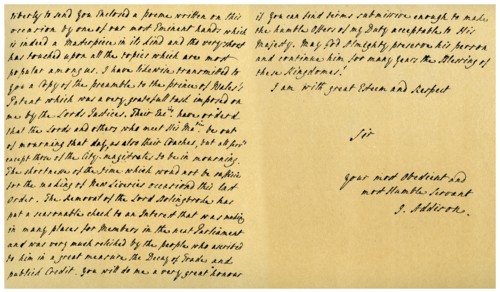 liberty to send you enclosed a poem written on this
occasion by one of our most Eminent hands which
is indeed a Masterpiece in its kind and tho' very short
has touched upon all the topics which are most
popular among us. I have likewise transmitted to
you a Copy of the preamble to the prince of Wales's
Patent which was a very gratefull task imposed on
me by the Lords Justices. Their Exc.ies have ordered
that the Lords and others who meet His Ma.ty be out
of mourning that day, as also their Coaches, but all serv.ts
except those of the City magistrates to be in mourning.
The shortness of the time which would not be sufficient
for the making of New Liveries occasioned this last
Order. The Removal of the Lord Bolingbroke has
put a seasonable check to an Interest that was making
in many places for Members in the next Parliament
and was very much relished by the people who ascribed
to him in a great measure the Decay of Trade and
publick Credit. You will do me a very great honour
if you can find terms submissive enough to make
the humble offers of my Duty acceptable to His
Majesty. May God Almighty preserve his person
and continue him for many years the Blessing of
these Kingdoms!
I am with great Esteem and Respect
Sir
Your most Obedient and
most Humble Servant
J. Addison.